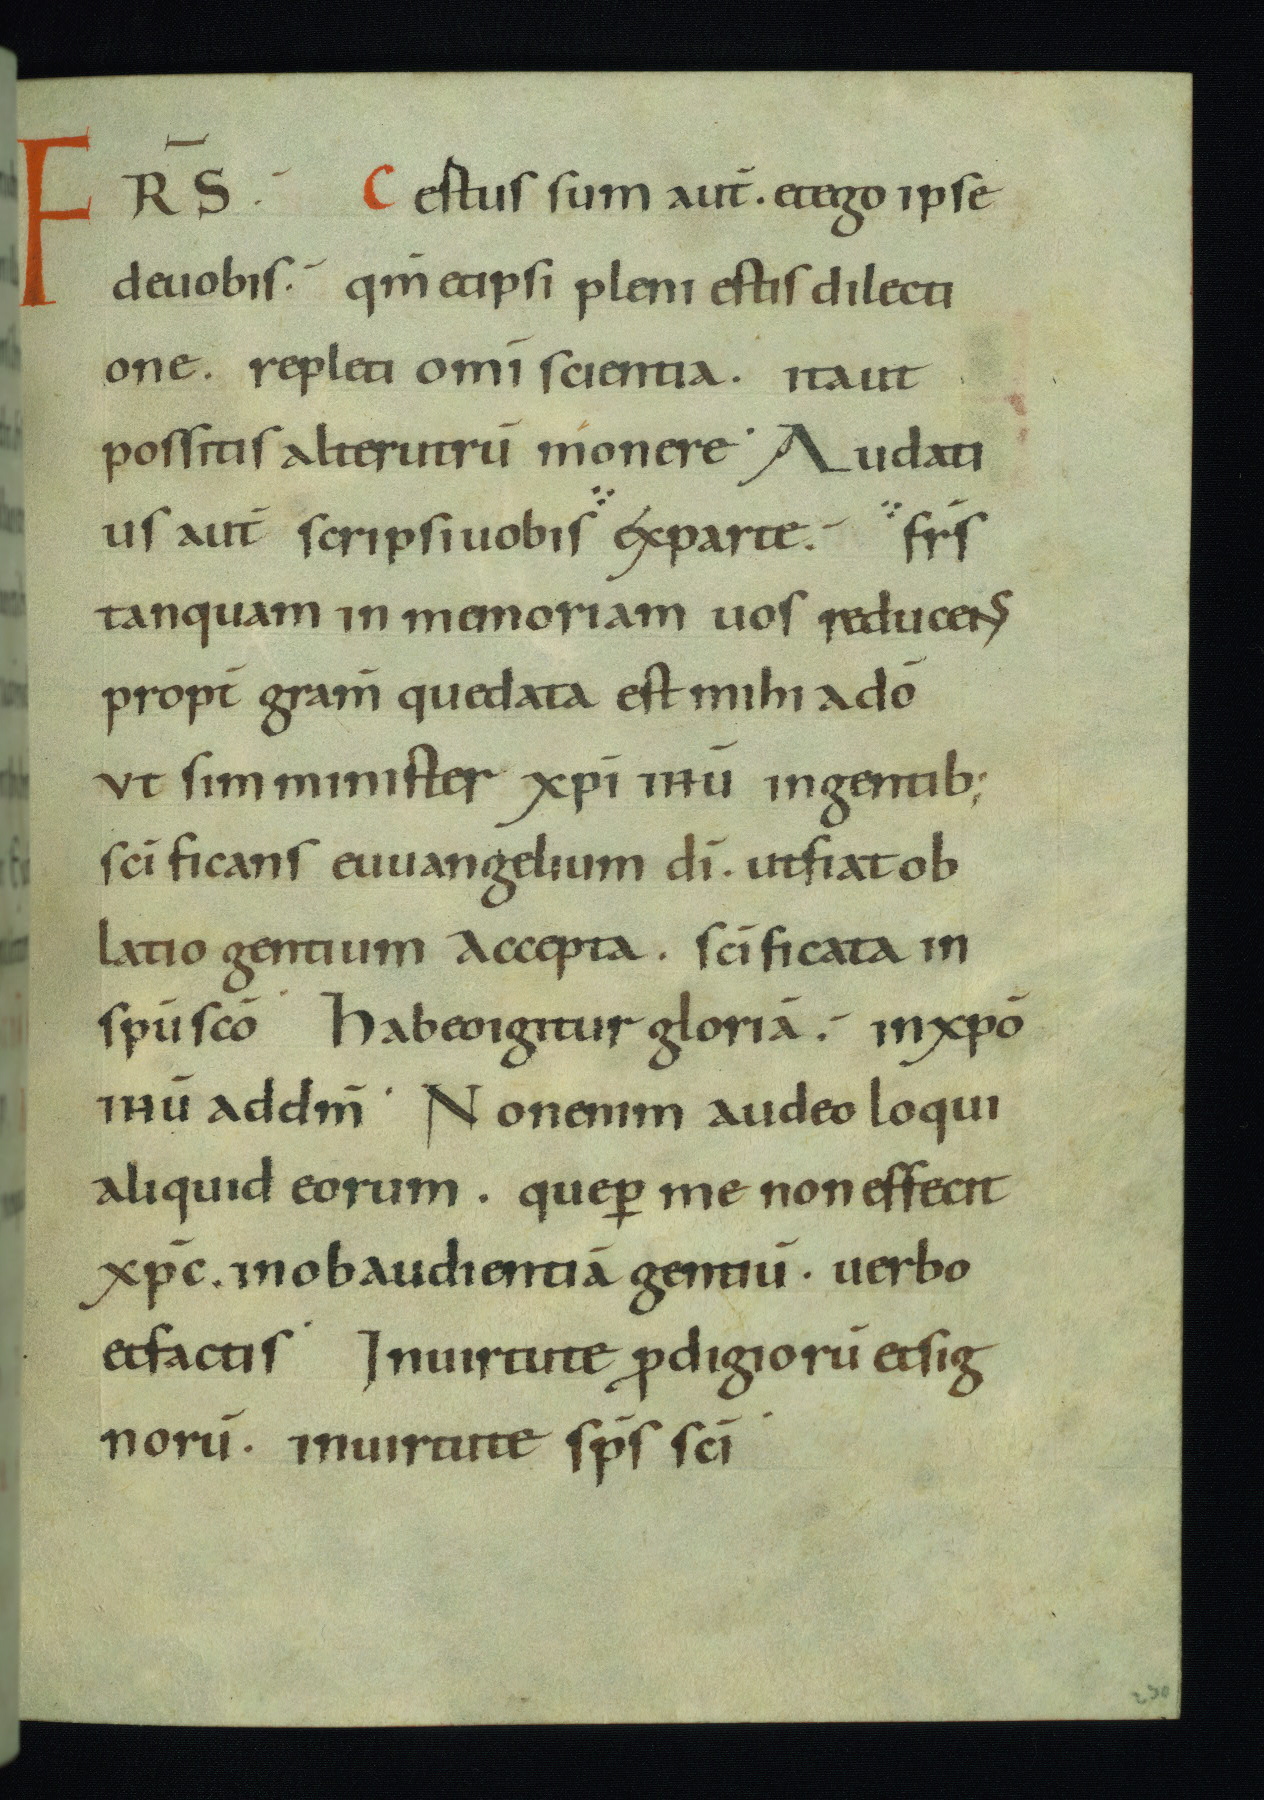 FR̄S · Cestus sum aut̄. et ego ipse
de uobis. qm̄ et ipsi pleni estis dilecti
one. repleti omī scientia. ita ut
possitis alterutrū monere· Audati
us aut̄ scripsi uobis ex parte. fr̄s
tanquam in memoriam uos reducens
propt̄ gram̄ que data est mihi a dō
ut sim minister xpī ihū in gentib;
scīficans euuangelium dī. ut fiat ob
latio gentium accepta. scīficata in
spū scō· Habeo igitur gloriā. in xpō
ihū ad dm̄· Non enim audeo loqui
aliquid eorum. que ꝑ me non effecit
xp̄c. in obaudientiā gentiū. uerbo
et factis· In uirtute ꝓdigiorū et sig
norū. in uirtute sp̄s scī·
230